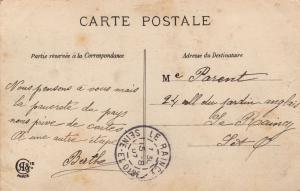 CARTE POSTALE
Partie réservée à la Correspondance
Adresse du Destinataire
Nous pensons à vous mais
la pauvreté du pays
nous prive de cartes
A une autre étape
Berthe
Mr Parent
24 all du jardin anglais
Le Raincy
S et O
LE RAINCY
SEINE-ET-OISE